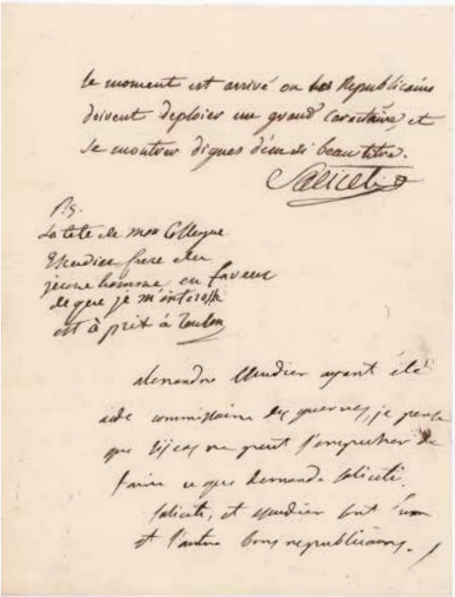 le moment est arrivé ou les Republicains
doivent deploier un grand caractaire, et
se montrer dignes d'un si beau titre.
Saliceti
P.S.
La tete de mon Collegue
Escudier frere du
jeune homme en faveur
de que je m'interesse
est à prix à Toulon
alexandre Escudier ayant été
aide commissaire des guerres, je pense
que ne peut l'empecher de
faire ce que demande Saliceti.
Saliceti, et escudier sont l'un
et l'autre bons republicains.